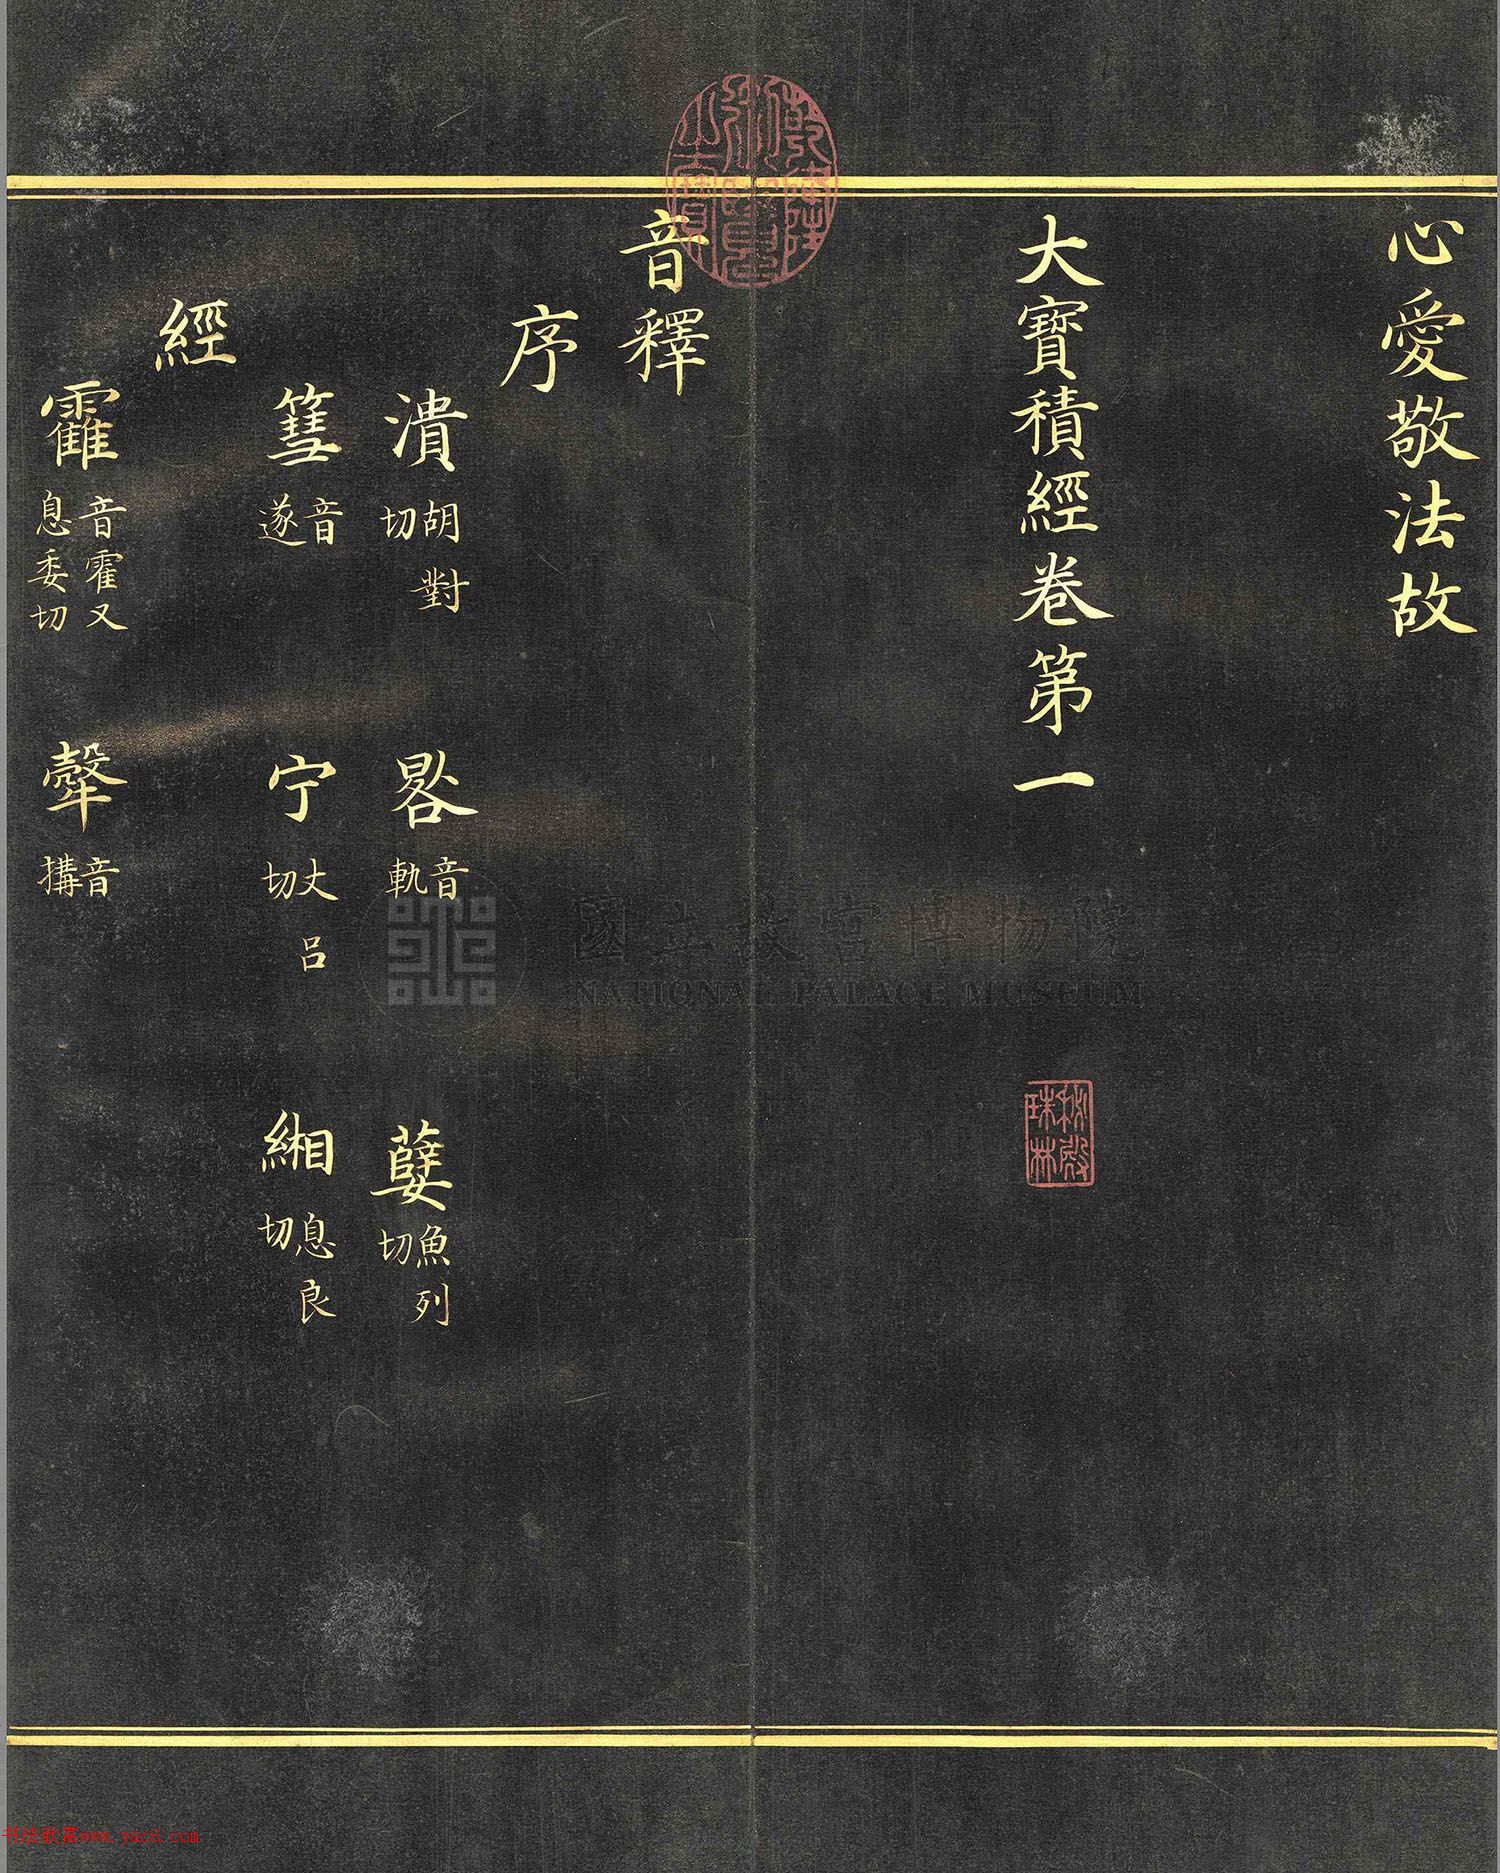 心愛敬法故
大寶積經卷第一
秘殿珠林
乾隆御覽之寶
音釋
序
潰 胡對切 晷 音軌 㜸 魚列切
篲 音遂 宁 丈呂切 緗 息良切
經
靃 音霍又息委切 音搆
國立故宮博物院
NATIONAL PALACE MUSEUM
书法欣赏www.yac8.com